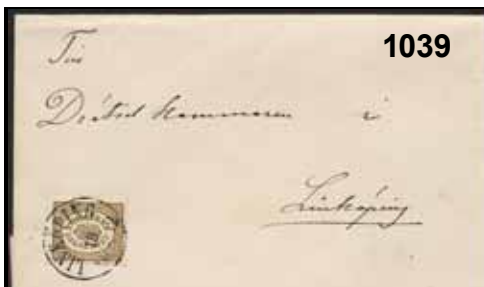 1039
Till
Drätsel Kammaren i
Linköping
LINKÖPING